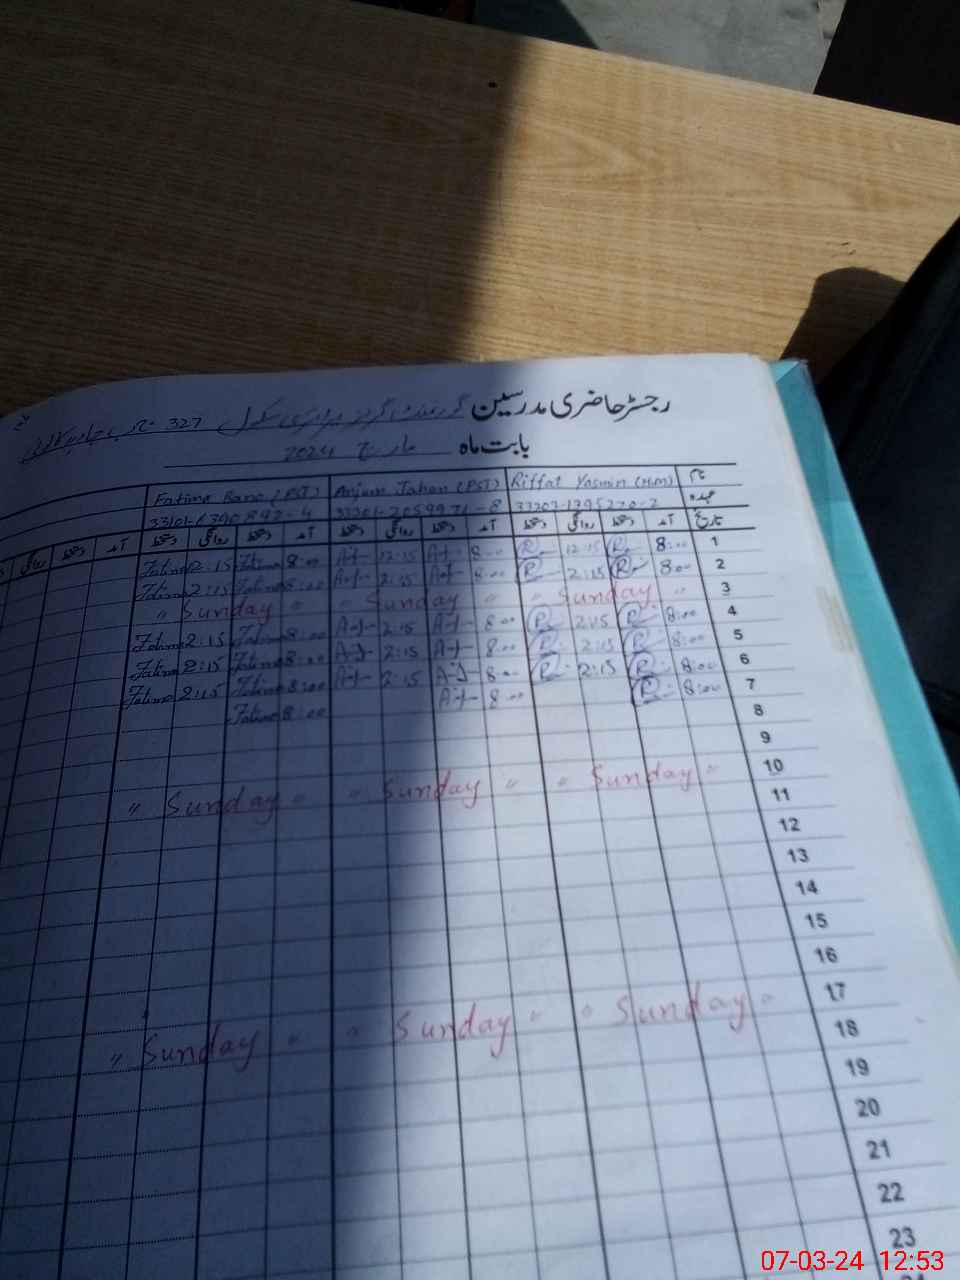 رجسٹر حاضری مدرسین گورنمنٹ گرلز پرائمری سکول 327
بابت ماہ مارچ 2024
نام Riffat Yasmin (H.M) Anjum Jahan (PST) Fatima Bano (PST)
عہدہ 33203-1395270-2 33201-2059971-8 33101-6390892-4
تاریخ آمد دستخط روانگی دستخط آمد دستخط روانگی دستخط آمد دستخط روانگی دستخط آمد دستخط روانگی
1 8:00 R 12:15 R 8:00 A-J 12:15 A-J 8:00 Fatima 12:15 Fatima
2 8:00 R 2:15 R 8:00 A-J 2:15 A-J 8:00 Fatima 2:15 Fatima
3 " Sunday " " Sunday " " Sunday "
4 8:00 R 2:15 R 8:00 A-J 2:15 A-J 8:00 Fatima 2:15 Fatima
5 8:00 R 2:15 R 8:00 A-J 2:15 A-J 8:00 Fatima 2:15 Fatima
6 8:00 R 2:15 R 8:00 A-J 2:15 A-J 8:00 Fatima 2:15 Fatima
7 8:00 R 8:00 A-J 8:00 Fatima
8
9
10 " Sunday " " Sunday " " Sunday "
11
12
13
14
15
16
17 " Sunday " " Sunday " " Sunday "
18
19
20
21
22
23
07-03-24 12:53